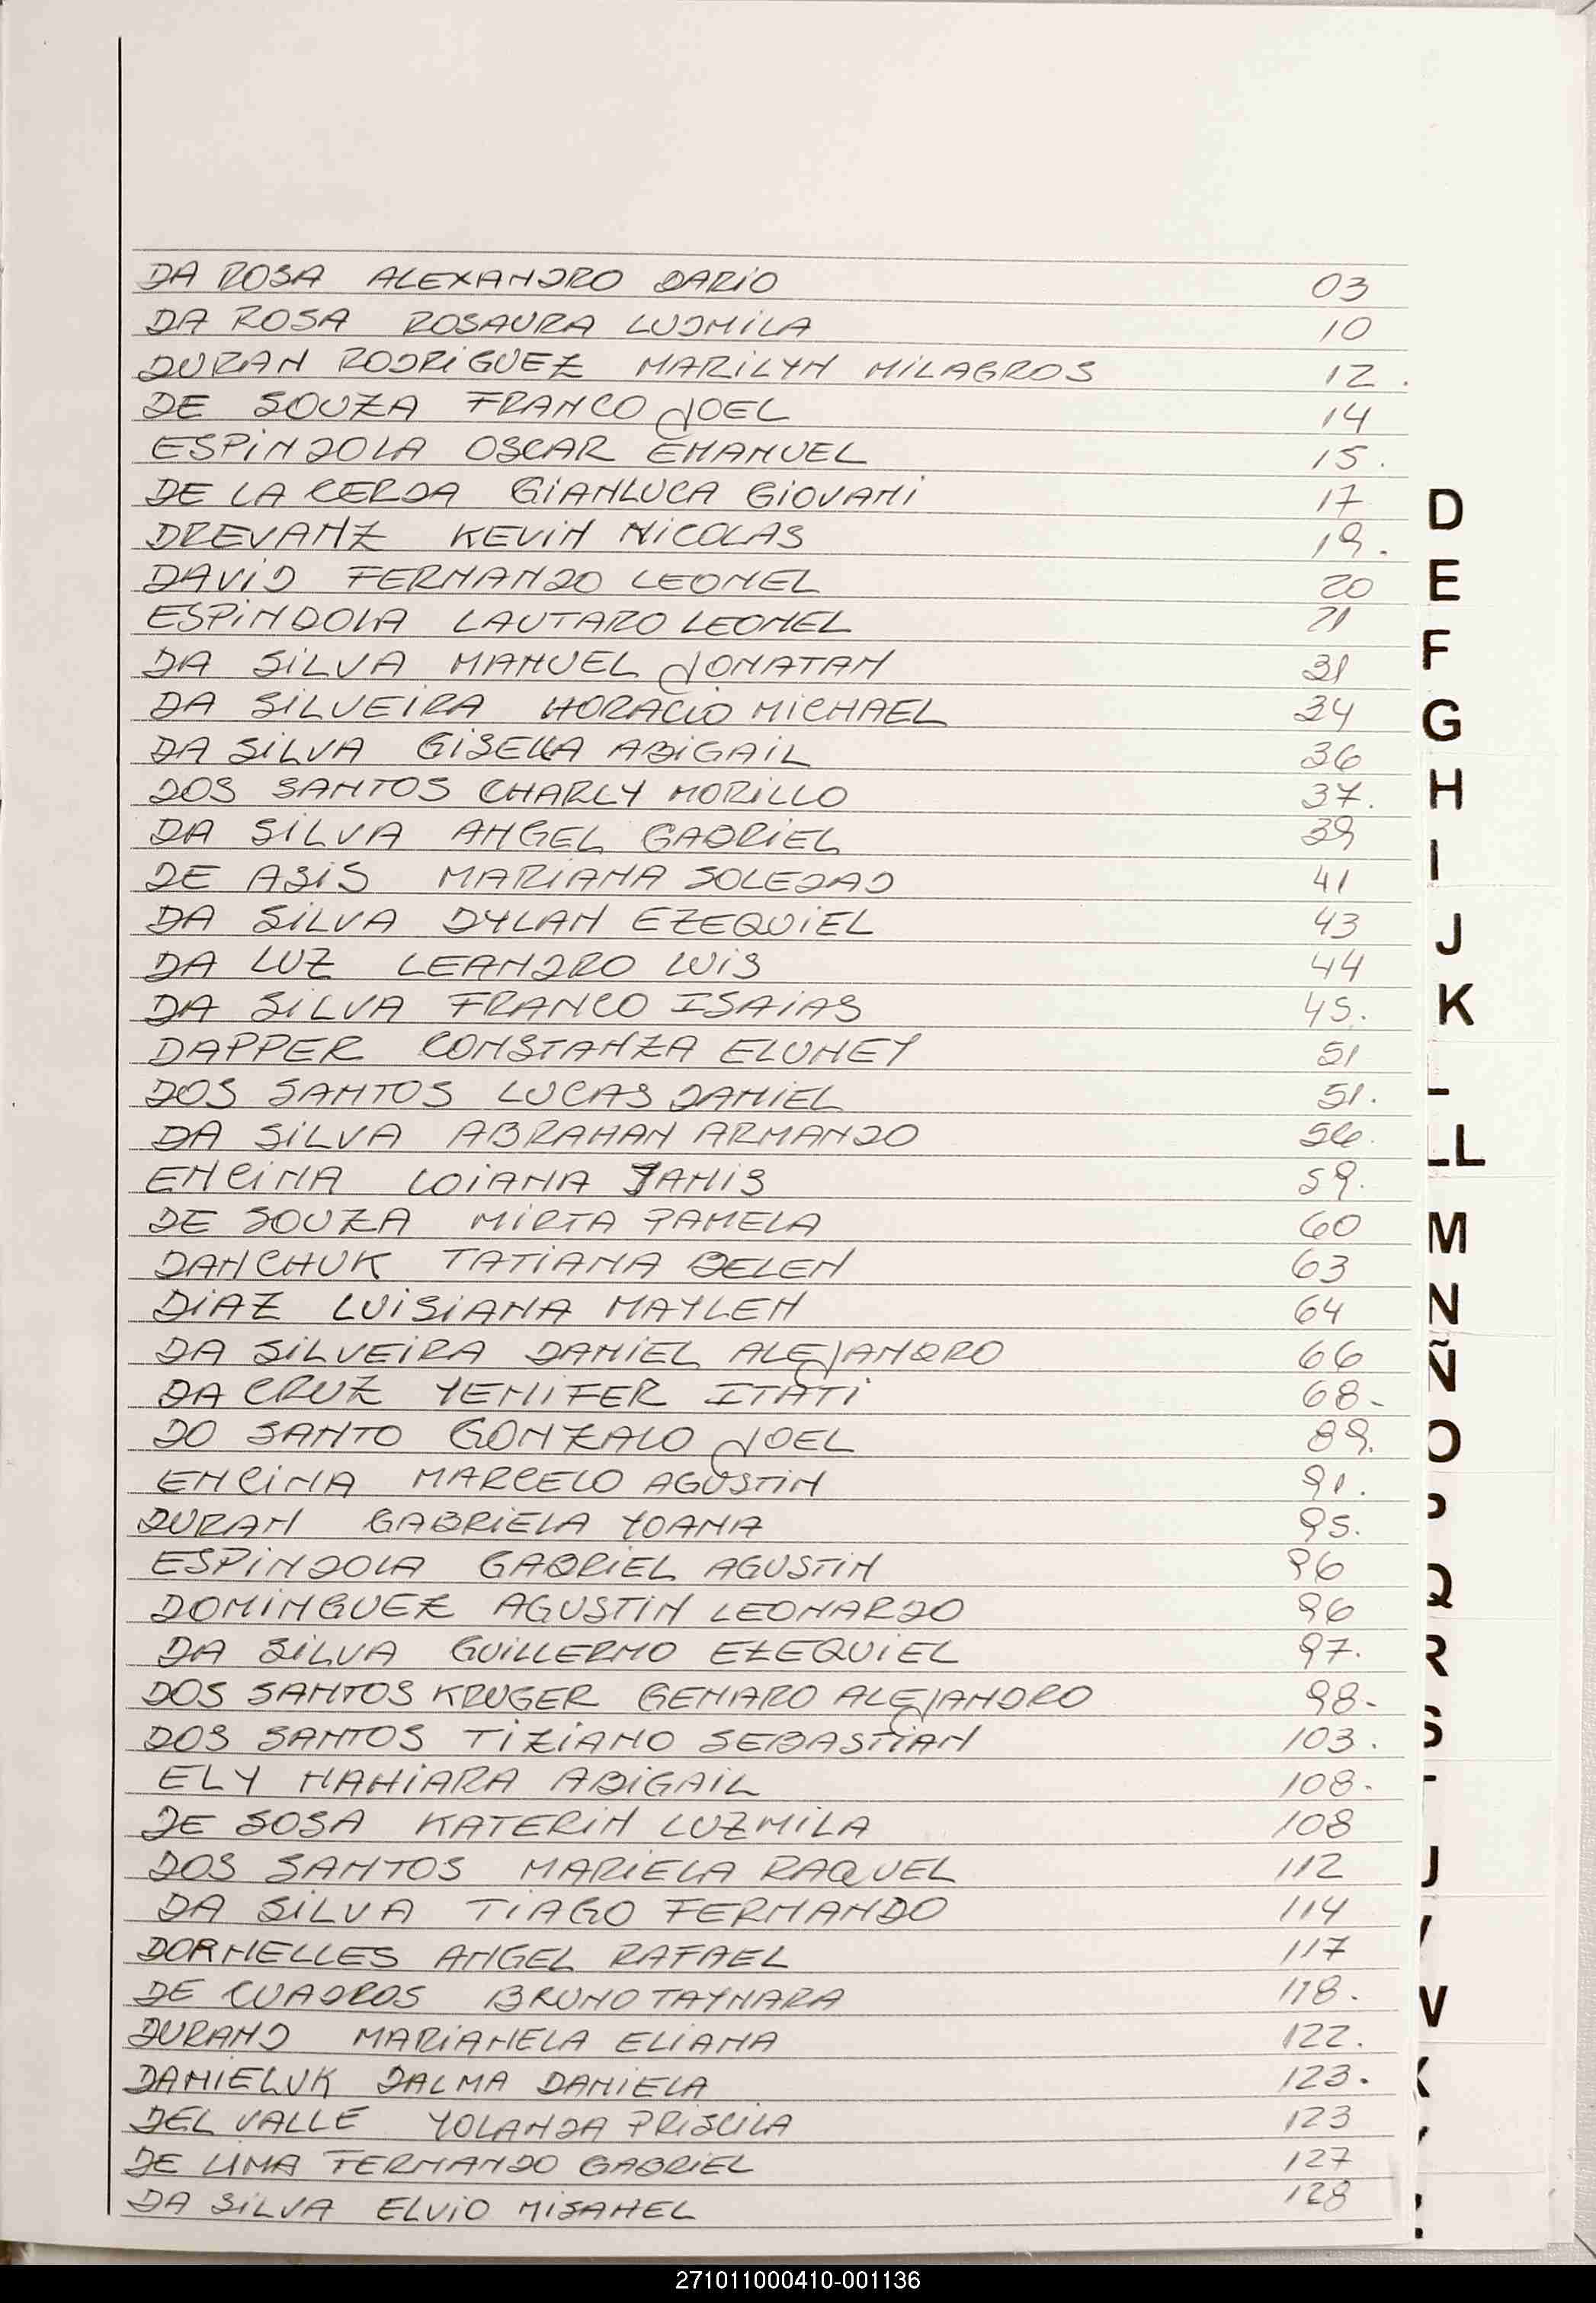 DA ROSA ALEXANDRO DARIO 03
DA ROSA ROSAURA LUDMILA 10
DURAN RODRIGUEZ MARILYN MILAGROS 12.
DE SOUZA FRANCO JOEL 14
ESPINDOLA OSCAR EMANUEL 15.
DE LA CERDA GIANLUCA GIOVANI 17
D
DREVANZ KEVIN NICOLAS 19.
DAVID FERNANDO LEONEL 20
E
ESPINDOLA LAUTARO LEONEL 21
DA SILVA MANUEL JONATAN 31
F
DA SILVEIRA HORACIO MICHAEL 34
G
DA SILVA GISELLA ABIGAIL 36
DOS SANTOS CHARLY MORILLO 37.
H
DA SILVA ANGEL GABRIEL 39
DE ASIS MARIANA SOLEDAD 41
I
DA SILVA DYLAN EZEQUIEL 43
J
DA LUZ LEANDRO LUIS 44
DA SILVA FRANCO ISAIAS 45.
K
DAPPER CONSTANZA ELUNEY 51
DOS SANTOS LUCAS DANIEL 51.
DA SILVA ABRAHAN ARMANDO 56.
LL
ENCINA LOIANA JANIS 59.
DE SOUZA MIRTA PAMELA 60
M
DANCHUK TATIANA BELEN 63
DIAZ LUISIANA MAYLEN 64
N
DA SILVEIRA DANIEL ALEJANDRO 66
Ñ
DA CRUZ YENIFER ITATI 68-
DO SANTO GONZALO JOEL 89.
O
ENCINA MARCELO AGUSTIN 91.
DURAN GABRIELA YOANA 95.
P
ESPINDOLA GABRIEL AGUSTIN 96
DOMINGUEZ AGUSTIN LEONARDO 96
Q
DA SILVA GUILLERMO EZEQUIEL 97.
R
DOS SANTOS KRUGER GENARO ALEJANDRO 98-
DOS SANTOS TIZIANO SEBASTIAN 103.
S
ELY NAHIARA ABIGAIL 108-
DE SOSA KATERIN LUZMILA 108
DOS SANTOS MARIELA RAQUEL 112
U
DA SILVA TIAGO FERNANDO 114
DORNELLES ANGEL RAFAEL 117
V
DE CUADROS BRUNO TAYNARA 118.
W
DURAND MARIANELA ELIANA 122.
DANIELUK DALMA DANIELA 123.
X
DEL VALLE YOLANDA PRISCILA 123
Y
DE LIMA FERNANDO GABRIEL 127
DA SILVA ELVIO MISAHEL 128
271011000410-001136